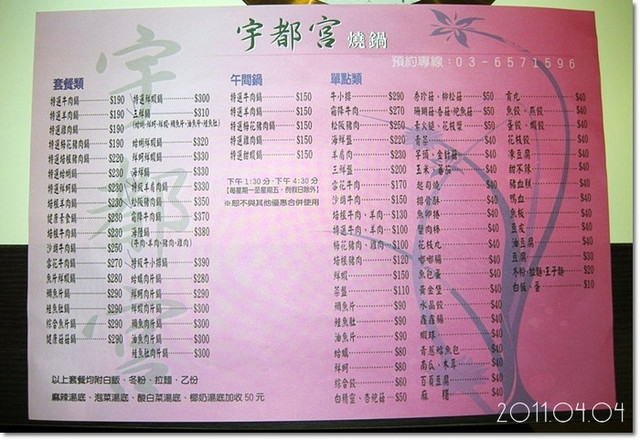 宇都宮 燒鍋
預約專線：03-6571596
套餐類
特選牛肉鍋 $190
特選羊肉鍋 $190
特選雞肉鍋 $190
特選梅花豬肉鍋 $190
特選培根豬肉鍋 $220
特選蛤蜊鍋 $230
特選鮮蚵鍋 $230
培根牛肉鍋 $230
培根羊肉鍋 $230
培根雞肉鍋 $230
健康素食鍋 $230
沙朗牛肉鍋 $250
雪花牛肉鍋 $270
魚片鮮蝦鍋 $280
鯛魚片鍋 $290
鮭魚肚鍋 $290
綜合魚片鍋 $290
健康菇菇鍋 $290
特選鮮蝦鍋 $300
三鮮鍋 $310
蛤蜊鮮蝦鍋 $320
鮮蚵鮮蝦鍋 $330
海鮮鍋 $330
松阪豬肉鍋 $350
霜降牛肉鍋 $370
海陸鍋 $380
(牛肉、羊肉、豬肉、雞肉)
特級牛小排鍋 $390
午間鍋
特選牛肉鍋 $150
特選羊肉鍋 $150
特選梅花豬肉鍋 $150
特選雞肉鍋 $150
特選甜蝦鍋 $150
下午 1:30 分- 下午 4:30 分
【每星期一至星期五，例假日除外】
※恕不與其他優惠合併使用
單點類
牛小排 $290
霜降牛肉 $270
松阪豬肉 $260
海鮮盤 $220
羊肩肉 $230
三鮮盤 $200
雪花牛肉 $170
沙朗牛肉 $150
培根牛肉、羊肉 $130
特選牛肉、羊肉 $100
梅花豬肉、雞肉 $100
培根豬肉 $120
鮮蝦 $150
菜盤 $110
鯛魚片 $90
鮭魚肚 $90
油魚片 $90
蛤蜊 $80
鮮蚵 $80
綜合餃 $60
白精靈、杏鮑菇 $50
秀珍菇、柳松菇 $50
青菜 $40
芋頭、金針菇 $40
玉米、番茄 $40
起司燒 $40
排骨酥 $40
魚卵捲 $40
蟹肉棒 $40
花枝丸 $40
魚包蛋 $40
黃金堡 $40
水晶餃 $40
鑫鑫腸 $40
蝦球 $40
南瓜、木耳 $40
百頁豆腐 $40
麻糬 $40
貢丸 $40
魚餃、燕餃 $40
蛋餃、蝦餃 $40
花枝餃 $40
凍豆腐 $40
甜不辣 $40
豬血糕 $40
鴨血 $40
魚板 $40
豆皮 $40
油豆腐 $40
豆腐 $30
冬粉、拉麵、王子麵 $20
白飯、蛋 $10
以上套餐均附白飯、冬粉、拉麵、乙份
麻辣湯底、泡菜湯底、酸白菜湯底、椰奶湯底加收 50 元
2011.04.04